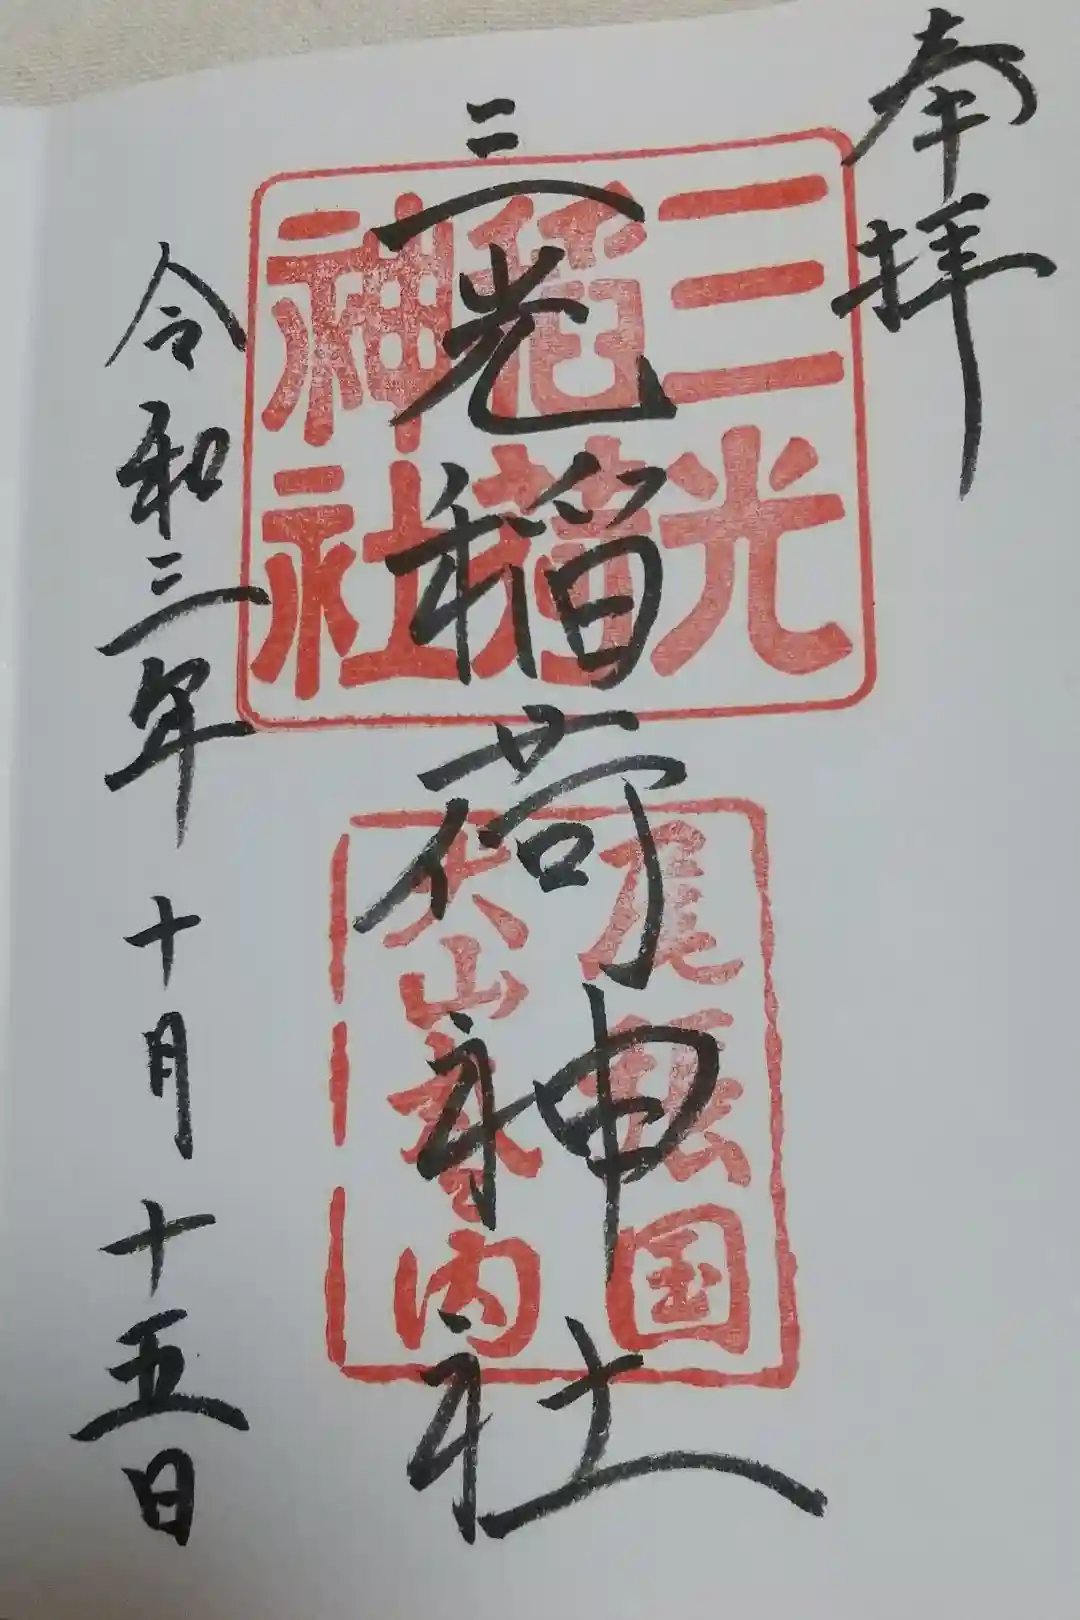 奉拝
三光稲荷神社
令和三年 十月 十五日
三光
稲荷
神社
尾張国
犬山城内